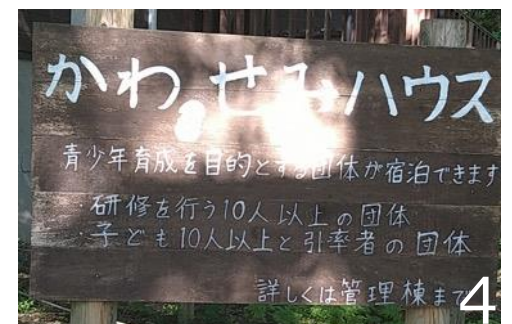 かわせみハウス
青少年育成を目的とする団体が宿泊できます
・研修を行う10人以上の団体
・子ども10人以上と引率者の団体
詳しくは管理棟まで
4